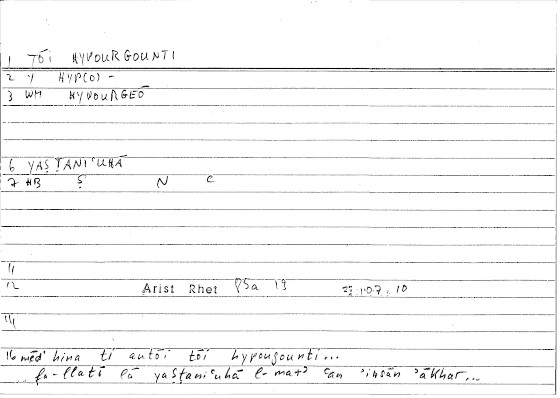 1 TŌI HYPOURGOUNTI
2 Y HYP(O) -
3 WM HYPOURGEŌ
6 YAṢṬANIʿUHĀ
7 HB Ṣ N C
11
12 Arist Rhet 85a 19 107,10
14
16 mēd' hina ti autōi tōi hypourgounti...
... fa-llatī lā yaṣṭaniʿuhā l-marʾ ʿan ʾinsān ʾākhar...